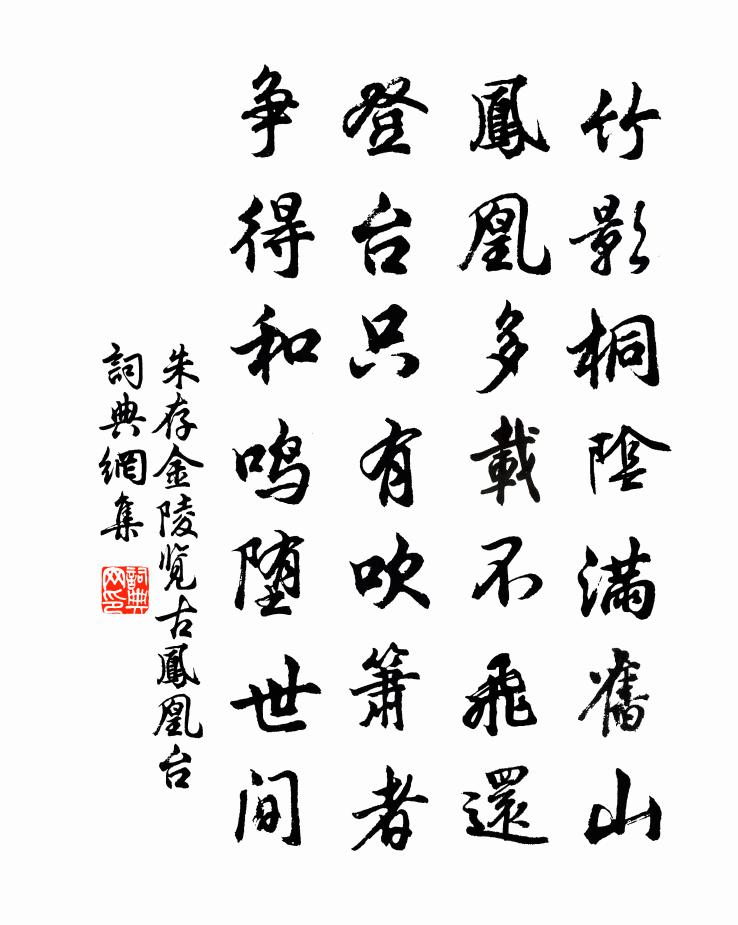 竹影桐陰滿舊山
鳳凰多載不飛還
登台只有吹簫者
争得和鸣堕世间
朱存金陵览古鳳凰台
詞典網集
詞典網印